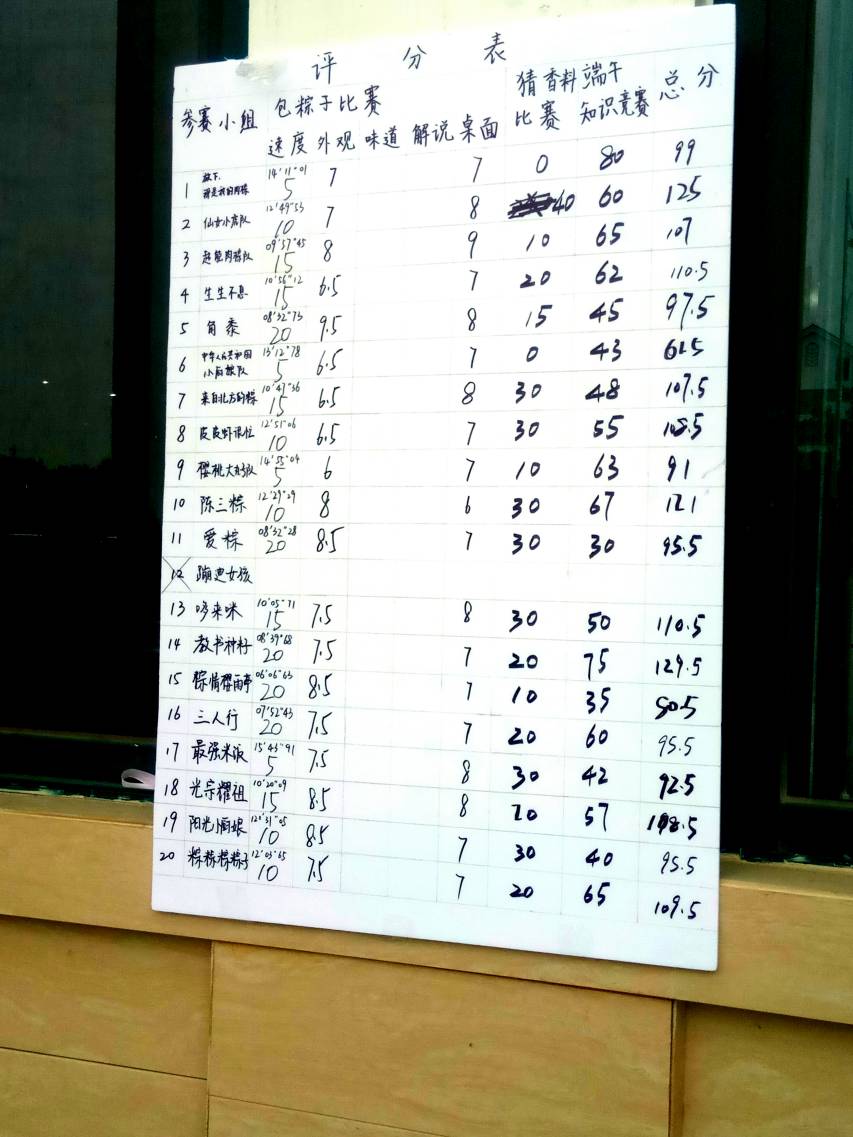 评 分 表
参赛小组 包粽子比赛 猜香料比赛 端午知识竞赛 总分
速度 外观 味道 解说 桌面
1 放下,那是我的肉粽 14'11"01 5 7 7 0 80 99
2 仙女小店队 12'49"53 10 7 8 40 60 125
3 超能肉粽队 09'57"45 15 8 9 10 65 107
4 生生不息 10'56"12 15 6.5 7 20 62 110.5
5 角黍 08'32"73 20 9.5 8 15 45 97.5
6 中华人民共和国小百粽队 13'12"78 5 6.5 7 0 43 61.5
7 来自北方的粽 10'47"36 15 6.5 8 30 48 107.5
8 皮皮虾退位 12'51"06 10 6.5 7 30 55 108.5
9 樱桃大部队 14'55"04 5 6 7 10 63 91
10 陈三粽 12'29"29 10 8 6 30 67 121
11 爱粽 08'32"28 20 8.5 7 30 30 95.5
12 蹦迪女孩
13 哆来咪 10'05"71 15 7.5 8 30 50 110.5
14 教书种籽 08'39"68 20 7.5 7 20 75 129.5
15 粽情樱雨亭 06'06"63 20 8.5 7 10 35 80.5
16 三人行 07'52"43 20 7.5 7 20 60 95.5
17 最强米饭 15'43"91 5 7.5 8 30 42 92.5
18 光宗耀祖 10'20"09 15 8.5 8 20 57 108.5
19 阳光 12'31"05 10 8.5 7 30 40 95.5
20 粽粽粽粽子 12'03"65 10 7.5 7 20 65 109.5